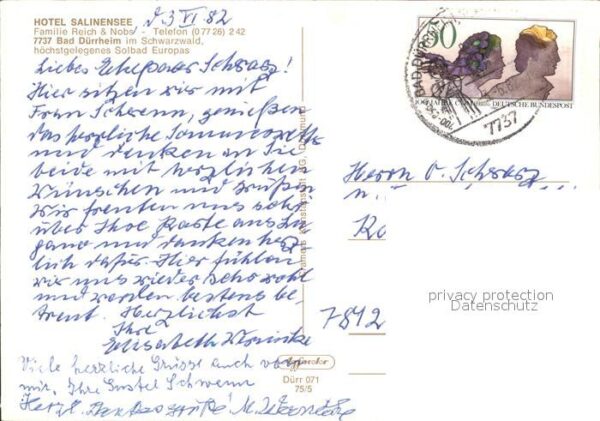 HOTEL SALINENSEE
Familie Reich & Nobs - Telefon (07726) 242
7737 Bad Dürrheim im Schwarzwald,
höchstgelegenes Solbad Europas
d. 3 VI 82
Liebes Ehepaar Schwarz!
Hier sitzen wir mit
Frau Schwenn, genießen
das herrliche Sommerwetter
und denken an Sie
beide mit herzlichen
Wünschen und Grüßen
Wir freuten uns sehr
über Ihre Karte aus Lu-
gano und danken herz-
lich dafür. Hier fühlen
wir uns wieder sehr wohl
und werden bestens be-
treut. Herzlichst
Ihre
Elisabeth
Viele herzliche Grüsse auch von
mir, Ihre Gustel Schwenn
Herzl.
60
DEUTSCHE BUNDESPOST
BAD DÜRRHEIM
7737
Herrn O. Schwarz
u.
7812
privacy protection
Datenschutz
Agfacolor
Dürr 071
75/5